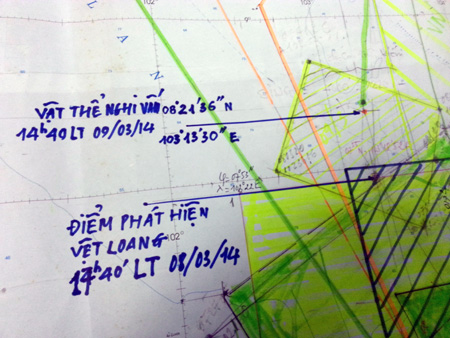 102°
VẬT THỂ NGHI VẤN 08°21'36" N
14h40 LT 09/03/14
103°13'30" E
1
ĐIỂM PHÁT HIỆN
VỆT LOANG
102°
14h40' LT 08/03/14